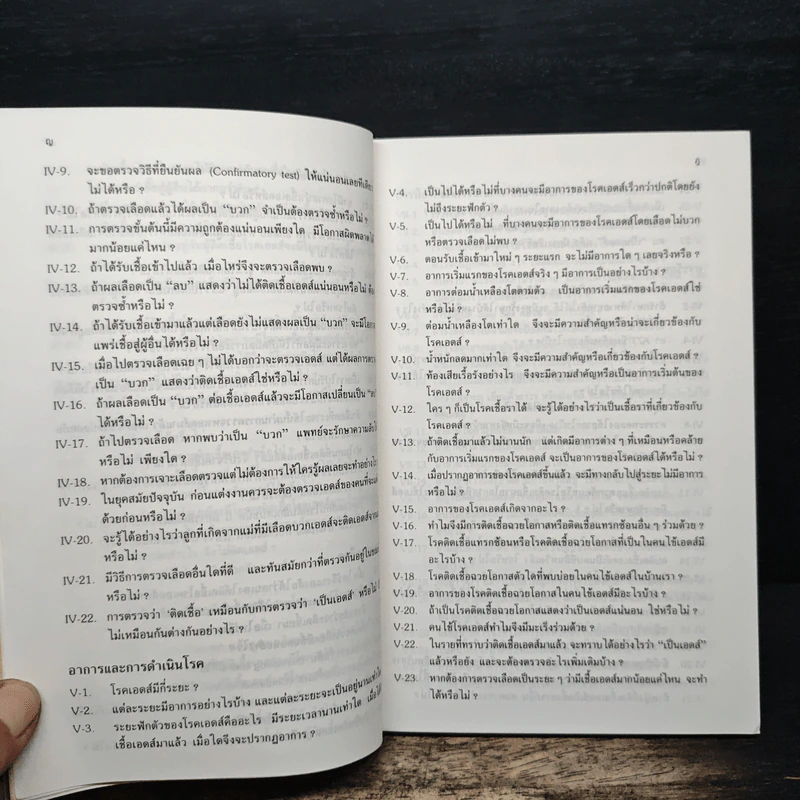 ญ
IV-9. จะขอตรวจวิธีที่ยืนยันผล (Confirmatory test) ให้แน่นอนเลยทีเดียว
ไม่ได้หรือ ?
IV-10. ถ้าตรวจเลือดแล้วได้ผลเป็น “บวก” จำเป็นต้องตรวจซ้ำหรือไม่ ?
IV-11. การตรวจขั้นต้นนี้มีความถูกต้องแน่นอนเพียงใด มีโอกาสผิดพลาดได้
มากน้อยแค่ไหน ?
IV-12. ถ้าได้รับเชื้อเข้าไปแล้ว เมื่อไหร่จึงจะตรวจเลือดพบ ?
IV-13. ถ้าผลเลือดเป็น “ลบ” แสดงว่าไม่ได้ติดเชื้อเอดส์แน่นอนหรือไม่
ตรวจซ้ำหรือไม่ ?
IV-14. ถ้าได้รับเชื้อเข้ามาแล้วแต่เลือดยังไม่แสดงผลเป็น “บวก” จะมีโอกาส
แพร่เชื้อสู่ผู้อื่นได้หรือไม่ ?
IV-15. เมื่อไปตรวจเลือดเฉย ๆ ไม่ได้บอกว่าจะตรวจเอดส์ แต่ได้ผลการตรวจ
เป็น “บวก” แสดงว่าติดเชื้อเอดส์ใช่หรือไม่ ?
IV-16. ถ้าผลเลือดเป็น “บวก” ต่อเชื้อเอดส์แล้วจะมีโอกาสเปลี่ยนเป็น
ได้หรือไม่ ?
IV-17. ถ้าไปตรวจเลือด หากพบว่าเป็น “บวก” แพทย์จะรักษาความลับ
หรือไม่ เพียงใด ?
IV-18. หากต้องการเจาะเลือดตรวจแต่ไม่ต้องการให้ใครรู้ผลเลยจะทำอย่างไร
IV-19. ในยุคสมัยปัจจุบัน ก่อนแต่งงานควรจะต้องตรวจเอดส์ของคนที่จะแต่ง
ด้วยก่อนหรือไม่ ?
IV-20. จะรู้ได้อย่างไรว่าลูกที่เกิดจากแม่ที่มีเลือดบวกเอดส์จะติดเอดส์จาก
หรือไม่ ?
IV-21. มีวิธีการตรวจเลือดอื่นใดที่ดี และทันสมัยกว่าที่ตรวจกันอยู่ใน
หรือไม่ ?
IV-22. การตรวจว่า ‘ติดเชื้อ’ เหมือนกับการตรวจว่า ‘เป็นเอดส์’ หรือไม่
ไม่เหมือนกันต่างกันอย่างไร ?
อาการและการดำเนินโรค
V-1. โรคเอดส์มีกี่ระยะ ?
V-2. แต่ละระยะมีอาการอย่างไรบ้าง และแต่ละระยะจะเป็นอยู่นานเท่าใด
V-3. ระยะฟักตัวของโรคเอดส์คืออะไร มีระยะเวลานานเท่าใด เมื่อได้
เชื้อเอดส์มาแล้ว เมื่อใดจึงจะปรากฏอาการ ?
ฎ
V-4. เป็นไปได้หรือไม่ที่บางคนจะมีอาการของโรคเอดส์เร็วกว่าปกติโดยยัง
ไม่ถึงระยะฟักตัว ?
V-5. เป็นไปได้หรือไม่ ที่บางคนจะมีอาการของโรคเอดส์โดยเลือดไม่บวก
หรือตรวจเลือดไม่พบ ?
V-6. ตอนรับเชื้อเข้ามาใหม่ ๆ ระยะแรก จะไม่มีอาการใด ๆ เลยจริงหรือ ?
V-7. อาการเริ่มแรกของโรคเอดส์จริง ๆ มีอาการเป็นอย่างไรบ้าง ?
V-8. อาการต่อมน้ำเหลืองโตตามตัว เป็นอาการเริ่มแรกของโรคเอดส์ใช่
หรือไม่ ?
V-9. ต่อมน้ำเหลืองโตเท่าใด จึงจะมีความสำคัญหรือน่าจะเกี่ยวข้องกับ
โรคเอดส์ ?
V-10. น้ำหนักลดมากเท่าใด จึงจะมีความสำคัญหรือเกี่ยวข้องกับโรคเอดส์ ?
V-11. ท้องเสียเรื้อรังอย่างไร จึงจะมีความสำคัญหรือเป็นอาการเริ่มต้นของ
โรคเอดส์ ?
V-12. ใคร ๆ ก็เป็นโรคเชื้อราได้ จะรู้ได้อย่างไรว่าเป็นเชื้อราที่เกี่ยวข้องกับ
โรคเอดส์ ?
V-13. ถ้าติดเชื้อมาแล้วไม่นานนัก แต่เกิดมีอาการต่าง ๆ ที่เหมือนหรือคล้าย
กับอาการเริ่มแรกของโรคเอดส์ จะเป็นอาการของโรคเอดส์ได้หรือไม่ ?
V-14. เมื่อปรากฏอาการของโรคเอดส์ขึ้นแล้ว จะมีทางกลับไปสู่ระยะไม่มีอาการ
หรือไม่ ?
V-15. อาการของโรคเอดส์เกิดจากอะไร ?
V-16. ทำไมจึงมีการติดเชื้อฉวยโอกาสหรือติดเชื้อแทรกซ้อนอื่น ๆ ร่วมด้วย ?
V-17. โรคติดเชื้อแทรกซ้อนหรือโรคติดเชื้อฉวยโอกาสที่เป็นในคนไข้เอดส์มี
อะไรบ้าง ?
V-18. โรคติดเชื้อฉวยโอกาสตัวใดที่พบบ่อยในคนไข้เอดส์ในบ้านเรา ?
V-19. อาการของโรคติดเชื้อฉวยโอกาสในคนไข้เอดส์มีอะไรบ้าง ?
V-20. ถ้าเป็นโรคติดเชื้อฉวยโอกาสแสดงว่าเป็นเอดส์แน่นอน ใช่หรือไม่ ?
V-21. คนไข้โรคเอดส์ทำไมจึงมีมะเร็งร่วมด้วย ?
V-22. ในรายที่ทราบว่าติดเชื้อเอดส์มาแล้ว จะทราบได้อย่างไรว่า “เป็นเอดส์”
แล้วหรือยัง และจะต้องตรวจอะไรเพิ่มเติมบ้าง ?
V-23. หากต้องการตรวจเลือดเป็นระยะ ๆ ว่ามีเชื้อเอดส์มากน้อยแค่ไหน จะทำ
ได้หรือไม่ ?